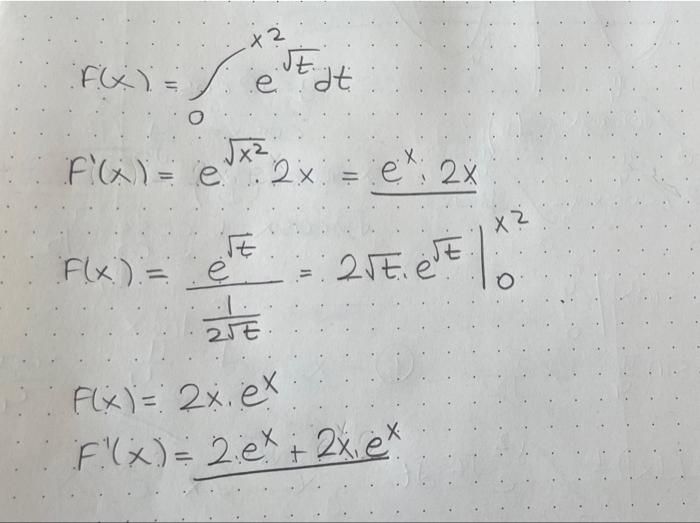 F(x) = ∫₀^{x2} e^{√t} dt
F'(x) = e^{√x2} 2x = e^x . 2x
F(x) = e^{√t} / (1 / 2√t) = 2√t . e^{√t} |₀^{x2}
F(x) = 2x . e^x
F'(x) = 2.e^x + 2x.e^x